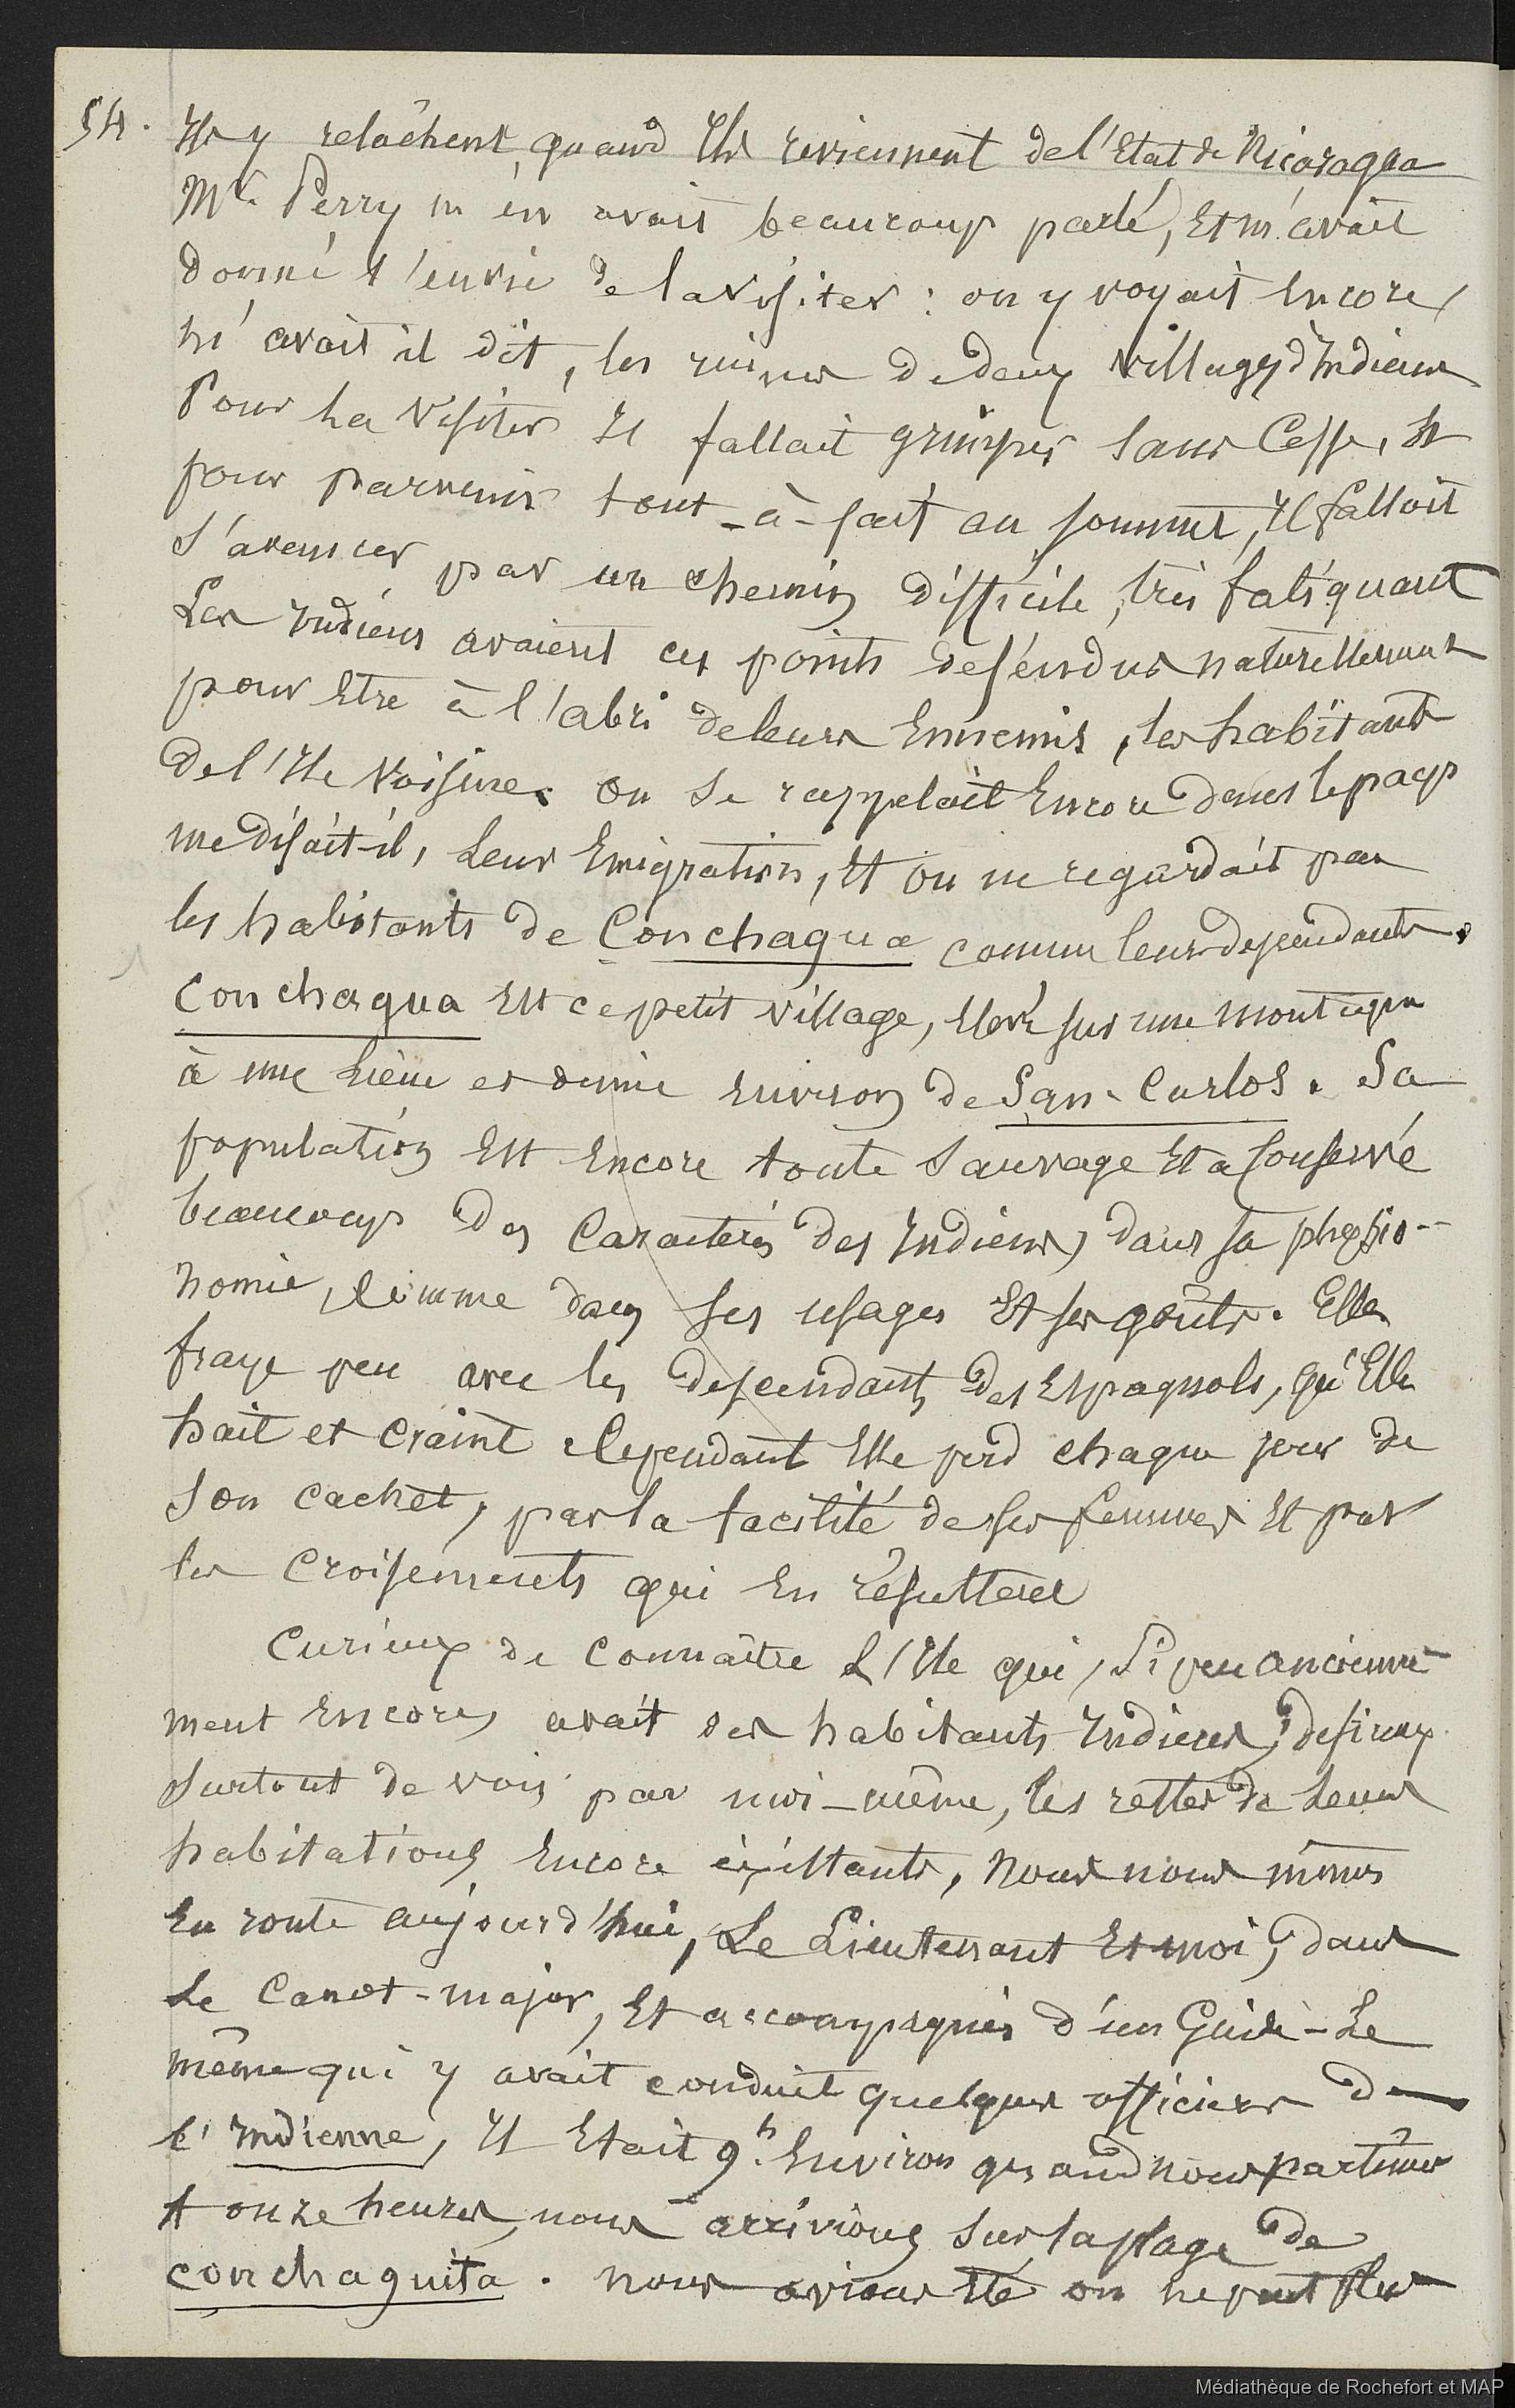 54.
Ils y relâchent quand Ils reviennent de l'Etat de Nicaragua
Mr. Perry m'en avait beaucoup parlé, Et m'avait
donné l'envie de la visiter : on y voyait Encore,
m'avait il dit, les ruines de deux villages d'Indiens
Pour la visiter Il fallait grimper sans Cesse, Et
pour parvenir tout-à-fait au sommet, Il fallait
s'avancer par un chemin difficile, très fatiguant
Les Indiens avaient ces points défendus naturellement
pour Etre à l'abri de leurs Ennemis, les habitants
de l'Ile voisine. On se rappelait Encore dans le pays
me disait-il, leur Emigration, Et on ne regardait pas
les habitants de Conchagua comme leurs descendants.
Conchagua Est ce petit village, élevé sur une montagne
à une lieue et demie Environ de San-Carlos. Sa
population Est Encore toute sauvage Et a conservé
beaucoup des Caractères des Indiens, dans sa physio-
nomie, Comme dans ses usages Et ses goûts. Elle
fraye peu avec les descendants des Espagnols, qu'Elle
hait et craint. Cependant Elle perd chaque jour de
son cachet, par la facilité de ses femmes Et par
les Croisements qui En résultent
Curieux de connaître L'Ile qui, si peu ancienne-
ment Encore, avait des habitants Indiens, desireux
surtout de voir par moi-même, les restes de leurs
habitations Encore existants, nous nous mîmes
En route aujourd'hui, Le Lieutenant Et moi, dans
Le Canot-major, Et accompagnés d'un Guide - Le
même qui y avait conduit quelques officiers de
l'Indienne, Il Etait 9h. Environ quand nous partîmes
A onze heures, nous arrivions sur la plage de
conchaguita. nous avions été on ne peut plus
Médiathèque de Rochefort et MAP